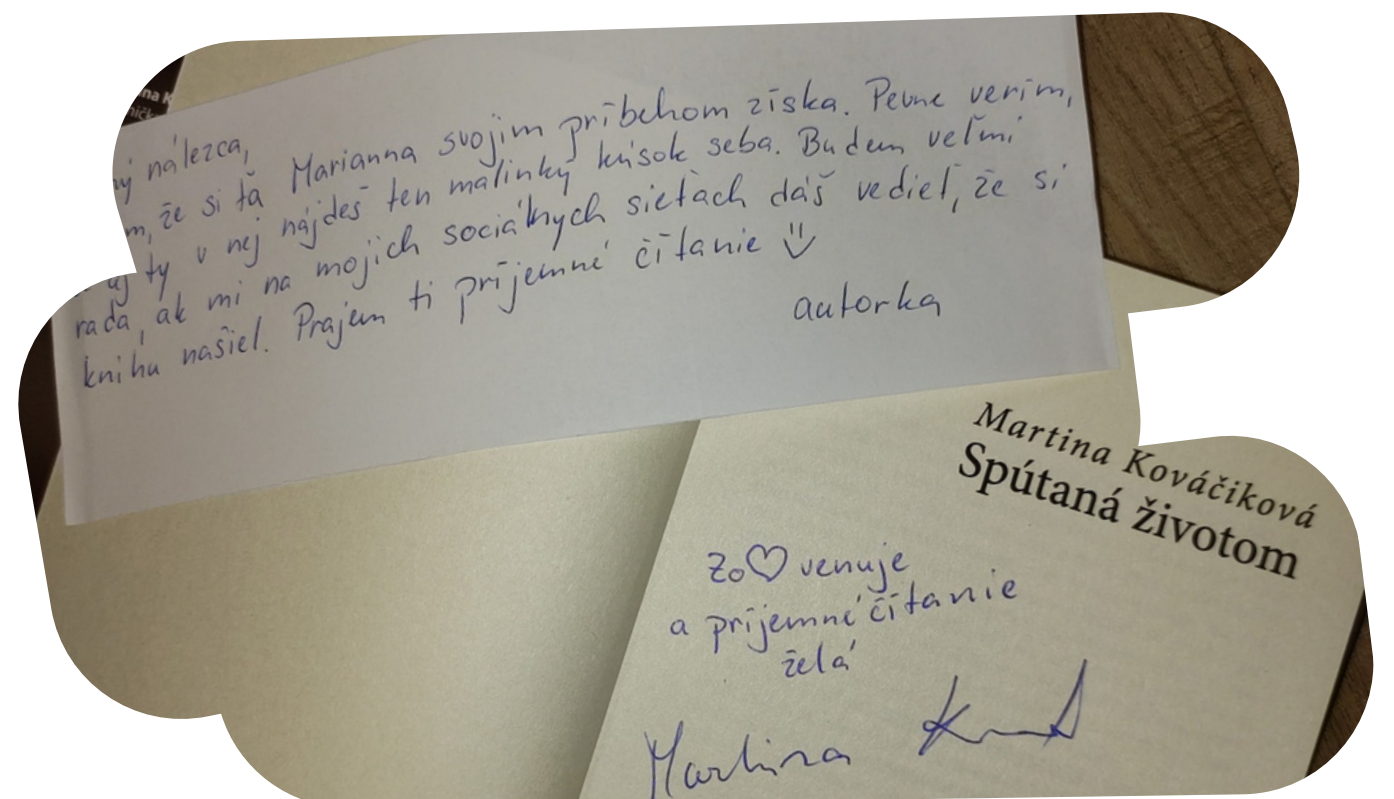 nálezca,
že si ťa Marianna svojim príbehom získa. Pevne verím,
aj ty v nej nájdeš ten malinký kúsok seba. Budem veľmi
rada, ak mi na mojich sociálnych sieťach dáš vedieť, že si
knihu našiel. Prajem ti príjemné čítanie
autorka
Martina Kováčiková
Spútaná životom
Zo ♡ venuje
a príjemné čítanie
želá
Martina